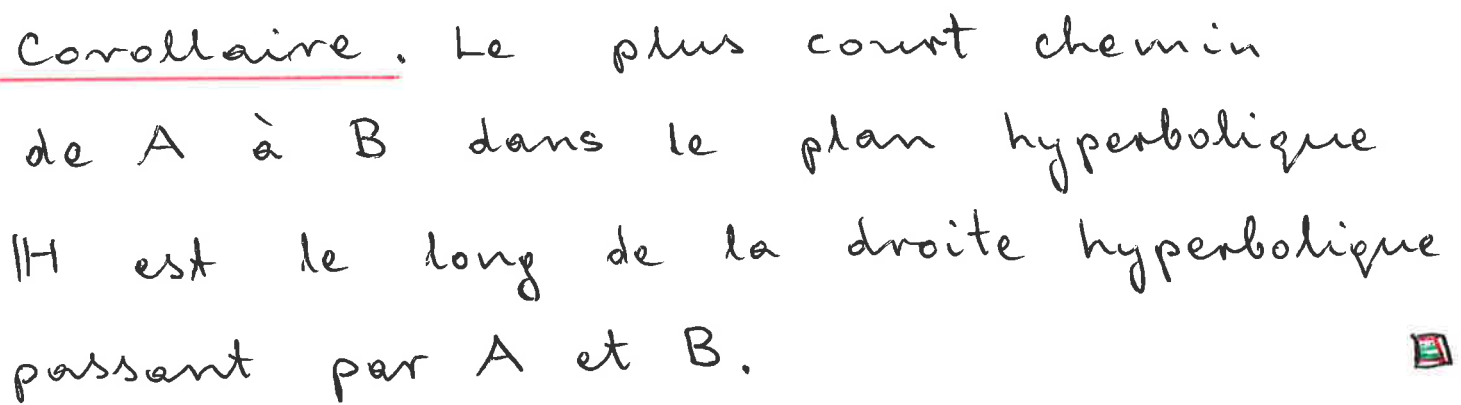 Corollaire. Le plus court chemin
de A à B dans le plan hyperbolique
ℍ est le long de la droite hyperbolique
passant par A et B.